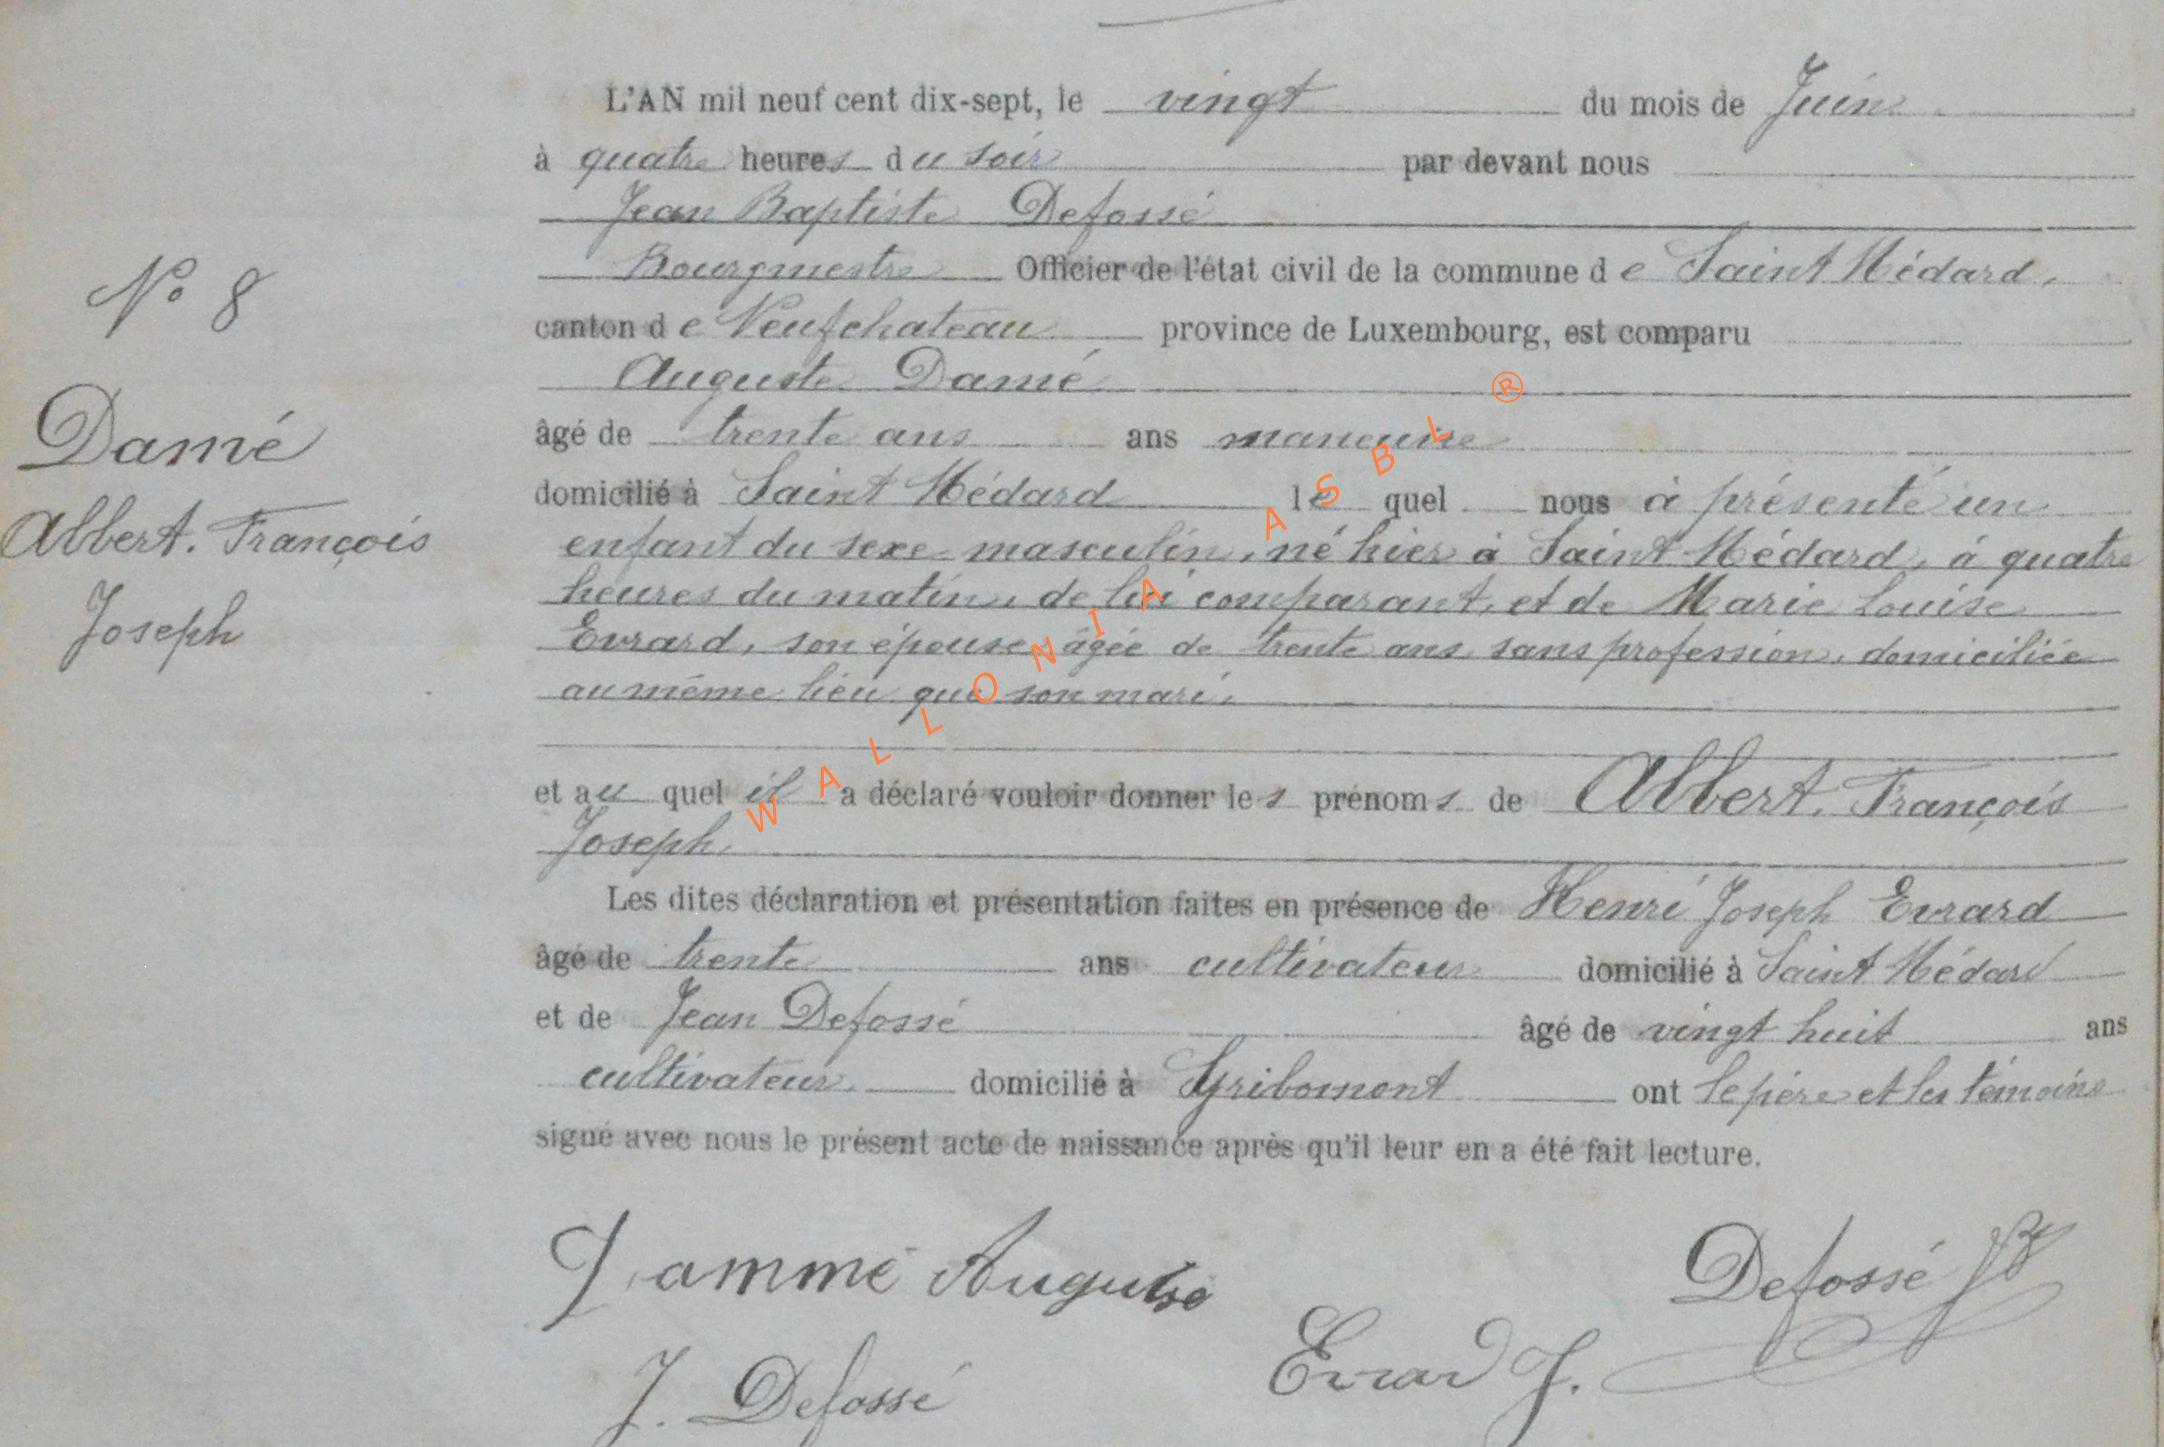 L'AN mil neuf cent dix-sept, le vingt du mois de Juin
à quatre heures du soir par devant nous
Jean Baptiste Defossé
Bourgmestre Officier de l'état civil de la commune de Saint Médard,
canton de Neufchateau province de Luxembourg, est comparu
Auguste Damé
âgé de trente ans ans manœuvre
domicilié à Saint Médard lequel nous à présenté un
enfant du sexe masculin, né hier à Saint Médard, à quatre
heures du matin, de lui comparant, et de Marie Louise
Evrard, son épouse, âgée de trente ans, sans profession, domiciliée
au même lieu que son mari,
et au quel il a déclaré vouloir donner les prénoms de Albert, François
Joseph,
Les dites déclaration et présentation faites en présence de Henri Joseph Evrard
âgé de trente ans cultivateur domicilié à Saint Médard
et de Jean Defossé âgé de vingt huit ans
cultivateur domicilié à Gribomont ont le père et les témoins
signé avec nous le présent acte de naissance après qu'il leur en a été fait lecture.
N° 8
Damé
Albert. François
Joseph
Damme Auguste
Defossé JB
J. Defossé
Evrard J.
WALLONIA ASBL ®